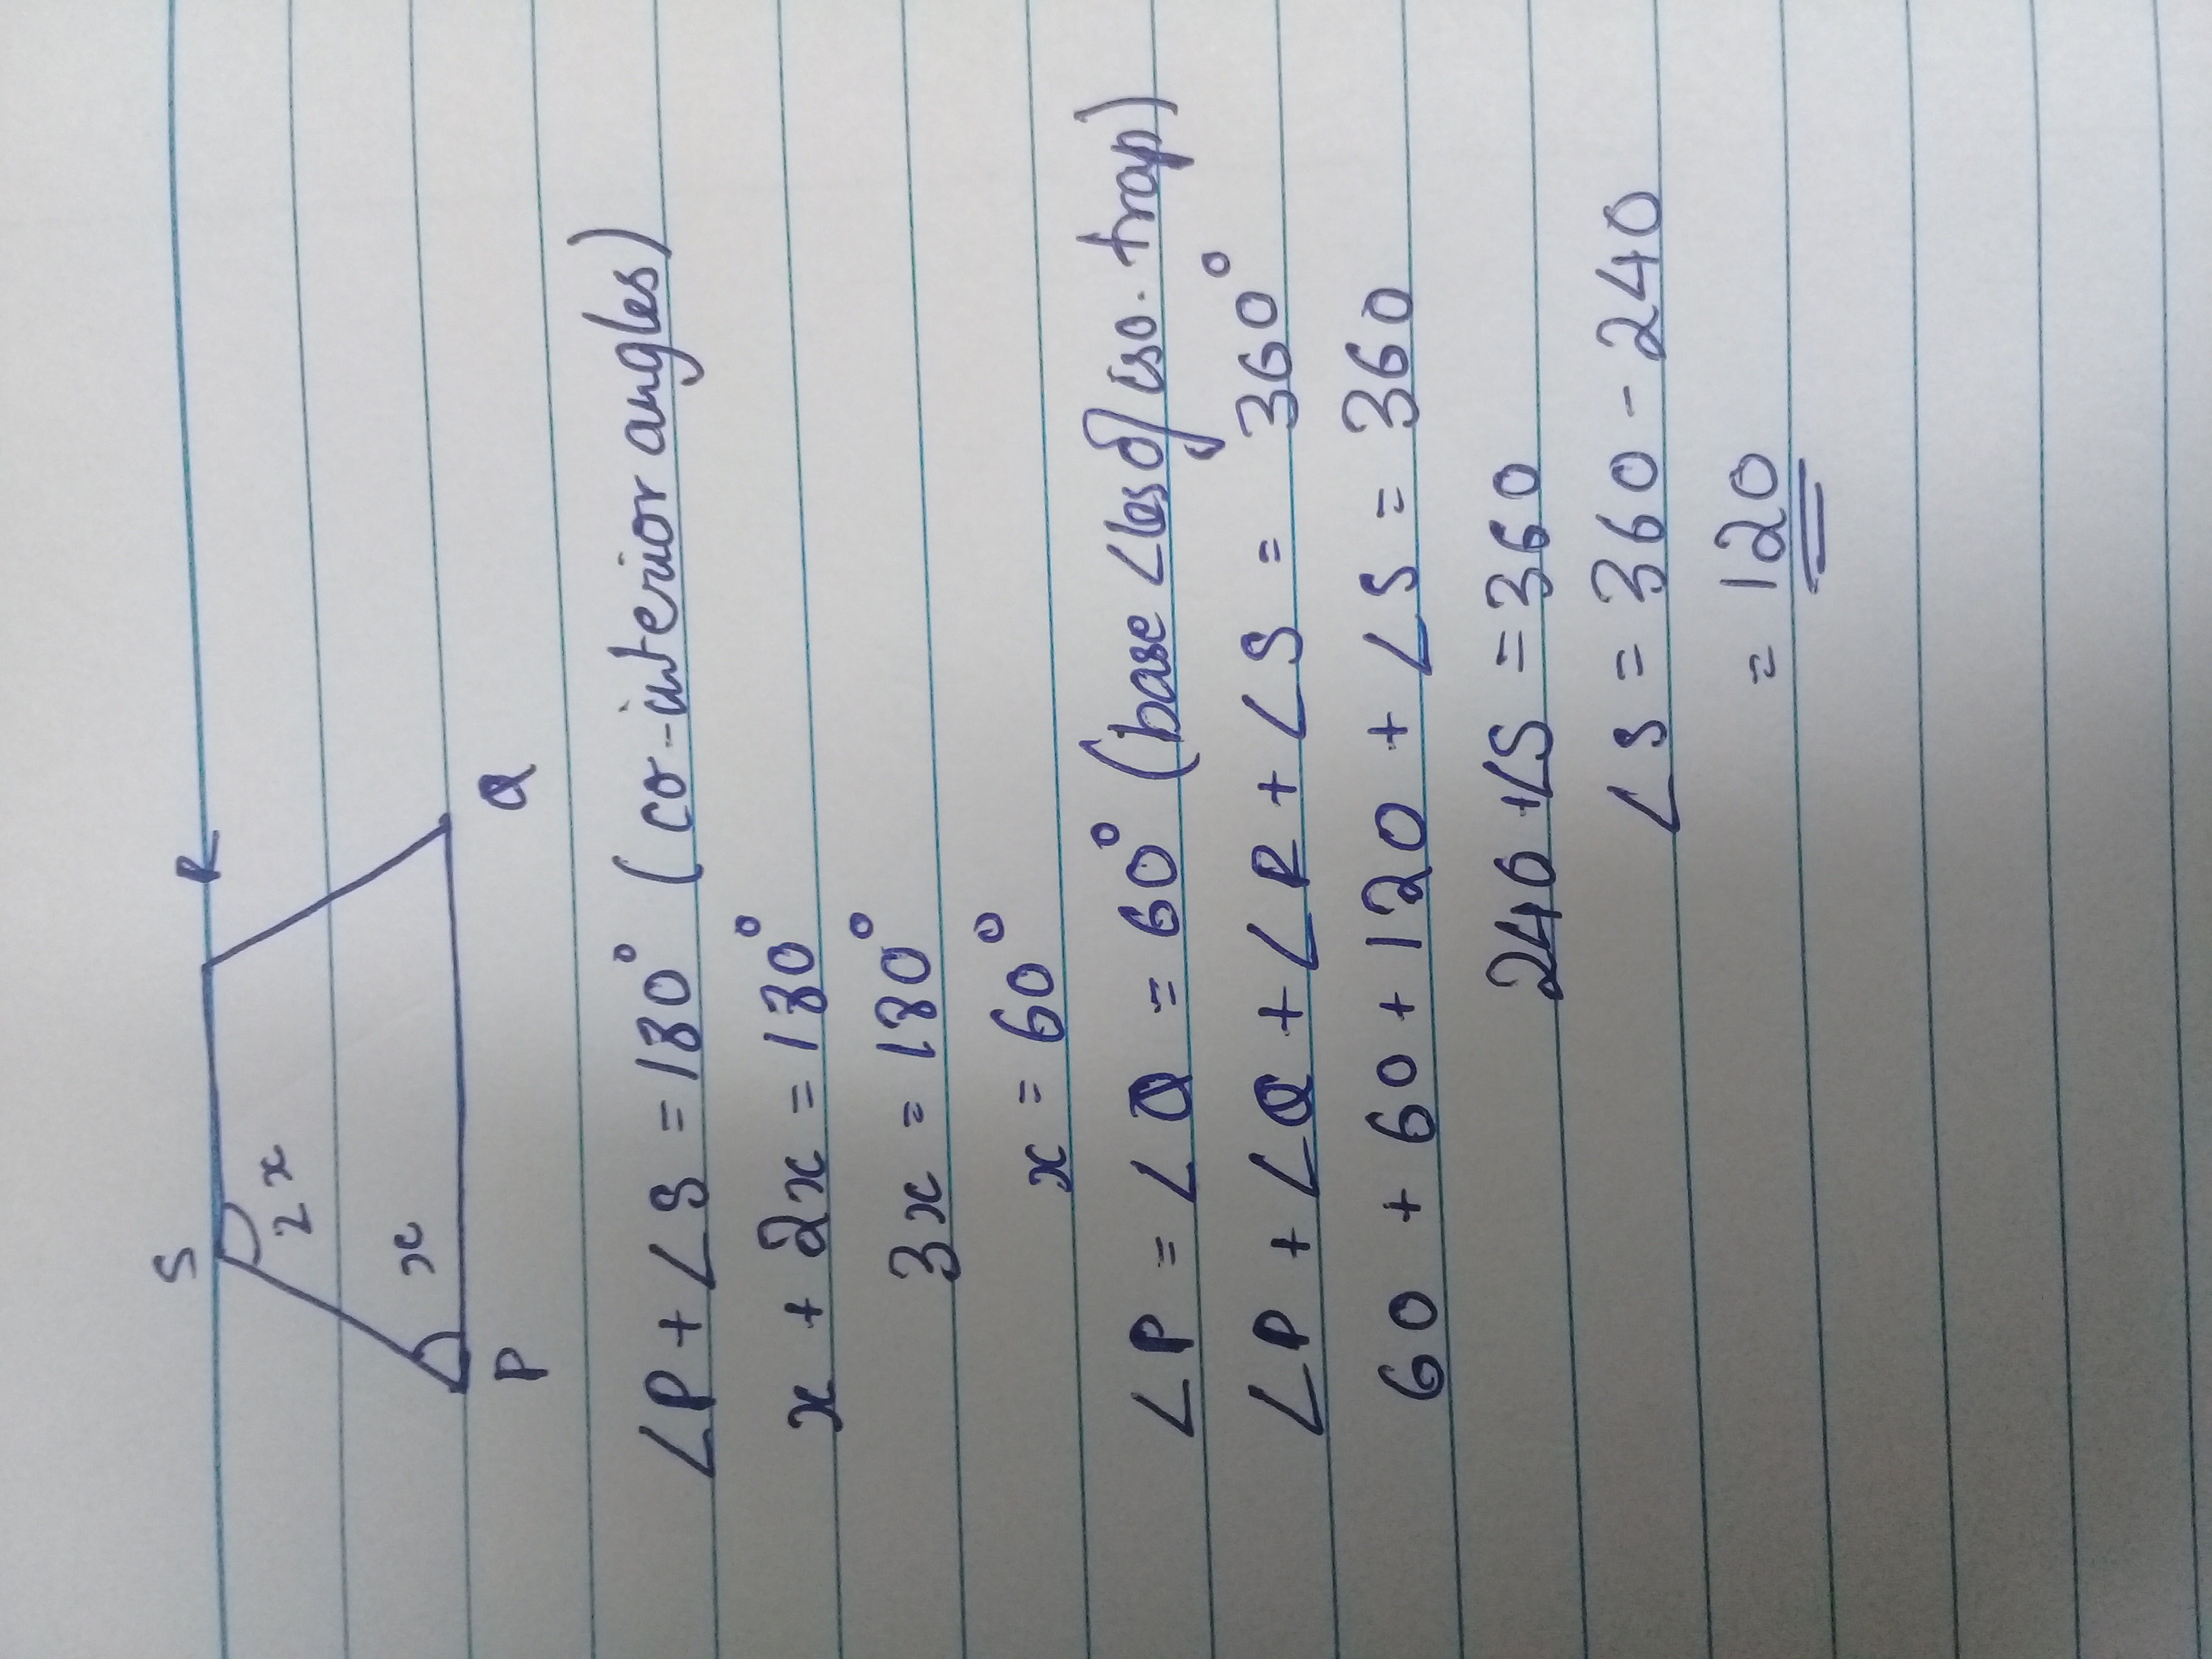 S R
2x
x
P Q
∠P + ∠S = 180° (co-interior angles)
x + 2x = 180°
3x = 180°
x = 60°
∠P = ∠Q = 60° (base ∠les of iso. trap)
∠P + ∠Q + ∠R + ∠S = 360°
60 + 60 + 120 + ∠S = 360
240 + ∠S = 360
∠S = 360 - 240
= 120